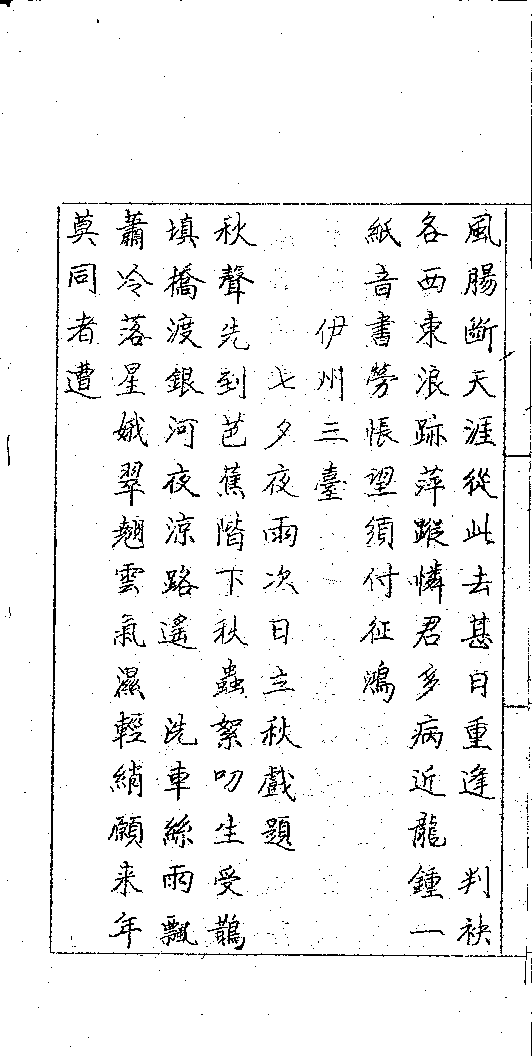 風腸斷天涯從此去甚日重逢　判袂
各西東浪跡萍蹤憐君多病近龍鍾一
紙音書勞悵望須付征鴻
伊州三臺
七夕夜雨次日立秋戲題
秋聲先到芭蕉階下秋蟲絮叨生受鵲
填橋渡銀河夜涼路遙　洗車絲雨飄
蕭冷落星娥翠翹雲氣濕輕綃願来年
莫同者遭